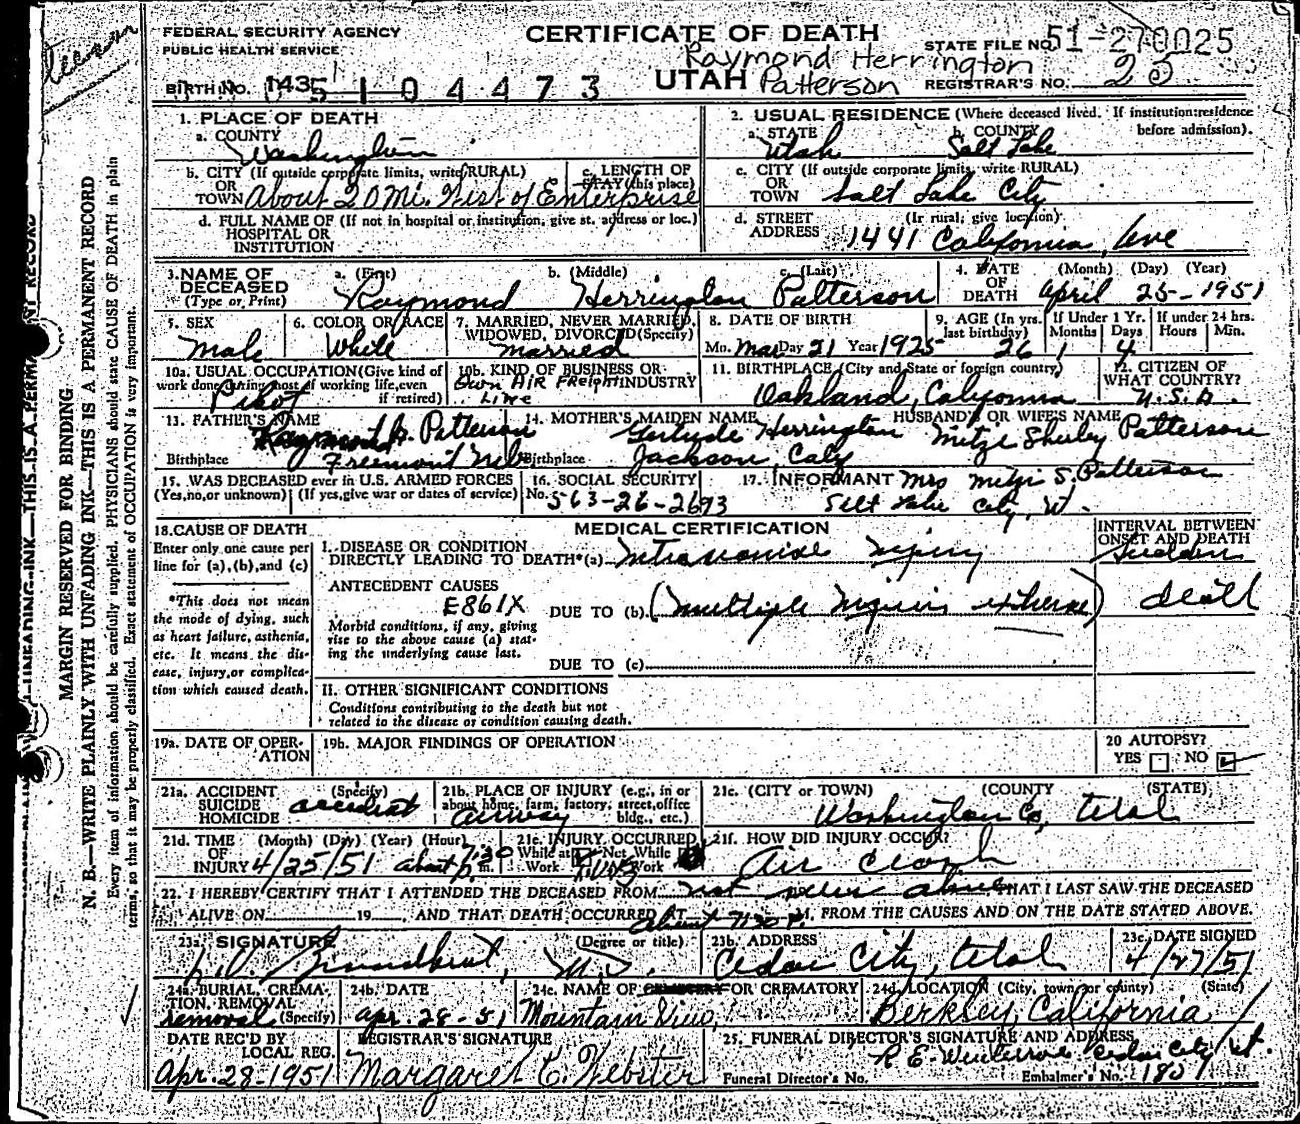 FEDERAL SECURITY AGENCY
PUBLIC HEALTH SERVICE
CERTIFICATE OF DEATH
UTAH
Raymond Herrington
Patterson
STATE FILE NO. 51-270025
REGISTRAR'S NO. 25
BIRTH NO. 143 5 1 0 4 4 7 3
1. PLACE OF DEATH
a. COUNTY
Washington
2. USUAL RESIDENCE (Where deceased lived. If institution: residence before admission).
a. STATE Utah
b. COUNTY Salt Lake
b. CITY (If outside corporate limits, write RURAL)
OR
TOWN About 20 Mi. West of Enterprise
c. LENGTH OF STAY (this place)
c. CITY (If outside corporate limits, write RURAL)
OR
TOWN Salt Lake City
d. FULL NAME OF (If not in hospital or institution, give st. address or loc.)
HOSPITAL OR
INSTITUTION
d. STREET ADDRESS (If rural, give location)
1441 California Ave
3. NAME OF DECEASED
(Type or Print)
a. (First) Raymond
b. (Middle) Herrington
c. (Last) Patterson
4. DATE OF DEATH
(Month) (Day) (Year)
April 25-1951
5. SEX
Male
6. COLOR OR RACE
White
7. MARRIED, NEVER MARRIED, WIDOWED, DIVORCED (Specify)
married
8. DATE OF BIRTH
Mo. Mar Day 21 Year 1925
9. AGE (In yrs. last birthday) 26
If Under 1 Yr. Months 1 Days 4
If under 24 hrs. Hours Min.
10a. USUAL OCCUPATION (Give kind of work done during most of working life, even if retired)
Pilot
10b. KIND OF BUSINESS OR INDUSTRY
Own AIR Freight Line
11. BIRTHPLACE (City and State or foreign country)
Oakland, California
12. CITIZEN OF WHAT COUNTRY?
U.S.A.
13. FATHER'S NAME
Raymond Patterson
Birthplace Freemont Neb
14. MOTHER'S MAIDEN NAME
Gertrude Herrington
Birthplace Jackson, Caly
HUSBAND'S OR WIFE'S NAME
Mitzi Sherley Patterson
15. WAS DECEASED ever in U.S. ARMED FORCES
(Yes, no, or unknown) (If yes, give war or dates of service)
16. SOCIAL SECURITY
No. 563-26-2693
17. INFORMANT Mrs Mitzi S. Patterson
Salt Lake City, U.
18. CAUSE OF DEATH
Enter only one cause per line for (a), (b), and (c)
*This does not mean the mode of dying, such as heart failure, asthenia, etc. It means the disease, injury, or complication which caused death.
MEDICAL CERTIFICATION
I. DISEASE OR CONDITION
DIRECTLY LEADING TO DEATH*(a) injury
ANTECEDENT CAUSES
E861X
DUE TO (b) (multiple injuries extreme)
Morbid conditions, if any, giving rise to the above cause (a) stating the underlying cause last.
DUE TO (c)
INTERVAL BETWEEN ONSET AND DEATH
Sudden
death
II. OTHER SIGNIFICANT CONDITIONS
Conditions contributing to the death but not related to the disease or condition causing death.
19a. DATE OF OPERATION
19b. MAJOR FINDINGS OF OPERATION
20 AUTOPSY?
YES NO
21a. ACCIDENT (Specify)
SUICIDE
HOMICIDE
accident
21b. PLACE OF INJURY (e.g., in or about home, farm, factory, street, office bldg., etc.)
airway
21c. (CITY OR TOWN) (COUNTY) (STATE)
Washington Co, Utah
21d. TIME OF INJURY
(Month) (Day) (Year) (Hour)
4/25/51 about 7:30 p. m.
21e. INJURY OCCURRED
While at Work
Not While Work
21f. HOW DID INJURY OCCUR?
Air Crash
22. I HEREBY CERTIFY THAT I ATTENDED THE DECEASED FROM not seen alive THAT I LAST SAW THE DECEASED
ALIVE ON 19 , AND THAT DEATH OCCURRED AT about 7:30 P. M, FROM THE CAUSES AND ON THE DATE STATED ABOVE.
23a. SIGNATURE
(Degree or title)
M.D.
23b. ADDRESS
Cedar City, Utah
23c. DATE SIGNED
4/27/51
24a. BURIAL, CREMATION, REMOVAL (Specify)
removal
24b. DATE
Apr. 28-51
24c. NAME OF CEMETERY OR CREMATORY
Mountain View,
24d. LOCATION (City, town, or county) (State)
Berkley, California
DATE REC'D BY LOCAL REG.
Apr. 28-1951
REGISTRAR'S SIGNATURE
Margaret E. Webster
25. FUNERAL DIRECTOR'S SIGNATURE AND ADDRESS
Cedar City, Ut.
Funeral Director's No.
Embalmer's No. 180
MARGIN RESERVED FOR BINDING
N. B.—WRITE PLAINLY WITH UNFADING INK—THIS IS A PERMANENT RECORD
Every item of information should be carefully supplied. PHYSICIANS should state CAUSE OF DEATH in plain
terms, so that it may be properly classified. Exact statement of OCCUPATION is very important.